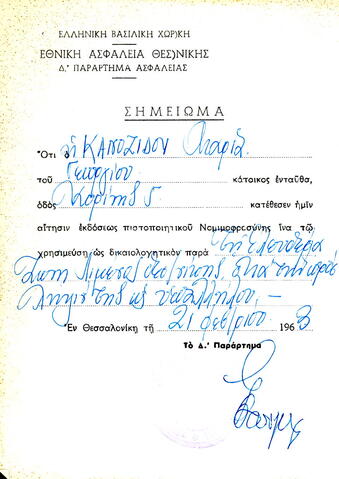 ΕΛΛΗΝΙΚΗ ΒΑΣΙΛΙΚΗ ΧΩΡ/ΚΗ
ΕΘΝΙΚΗ ΑΣΦΑΛΕΙΑ ΘΕΣ)ΝΙΚΗΣ
Δ.' ΠΑΡΑΡΤΗΜΑ ΑΣΦΑΛΕΙΑΣ
ΣΗΜΕΙΩΜΑ
Ὅτι ὁ ἡ ΚΑΠΟΖΙΔΟΥ Μαρία
τοῦ Γεωργίου κάτοικος ἐνταῦθα,
ὁδὸς κατέθεσεν ἡμῖν
αἴτησιν ἐκδόσεως πιστοποιητικοῦ Νομιμοφροσύνης ἵνα τῷ
χρησιμεύσῃ ὡς δικαιολογητικὸν παρὰ τῇ Ἐλευθέρα
Ζώνη Λιμένος Θεσ/νίκης, διὰ τὴν
ὡς ὑπαλλήλου.—
Ἐν Θεσσαλονίκῃ τῇ 21 Φεβ/ρίου 1963
Τὸ Δ.' Παράρτημα